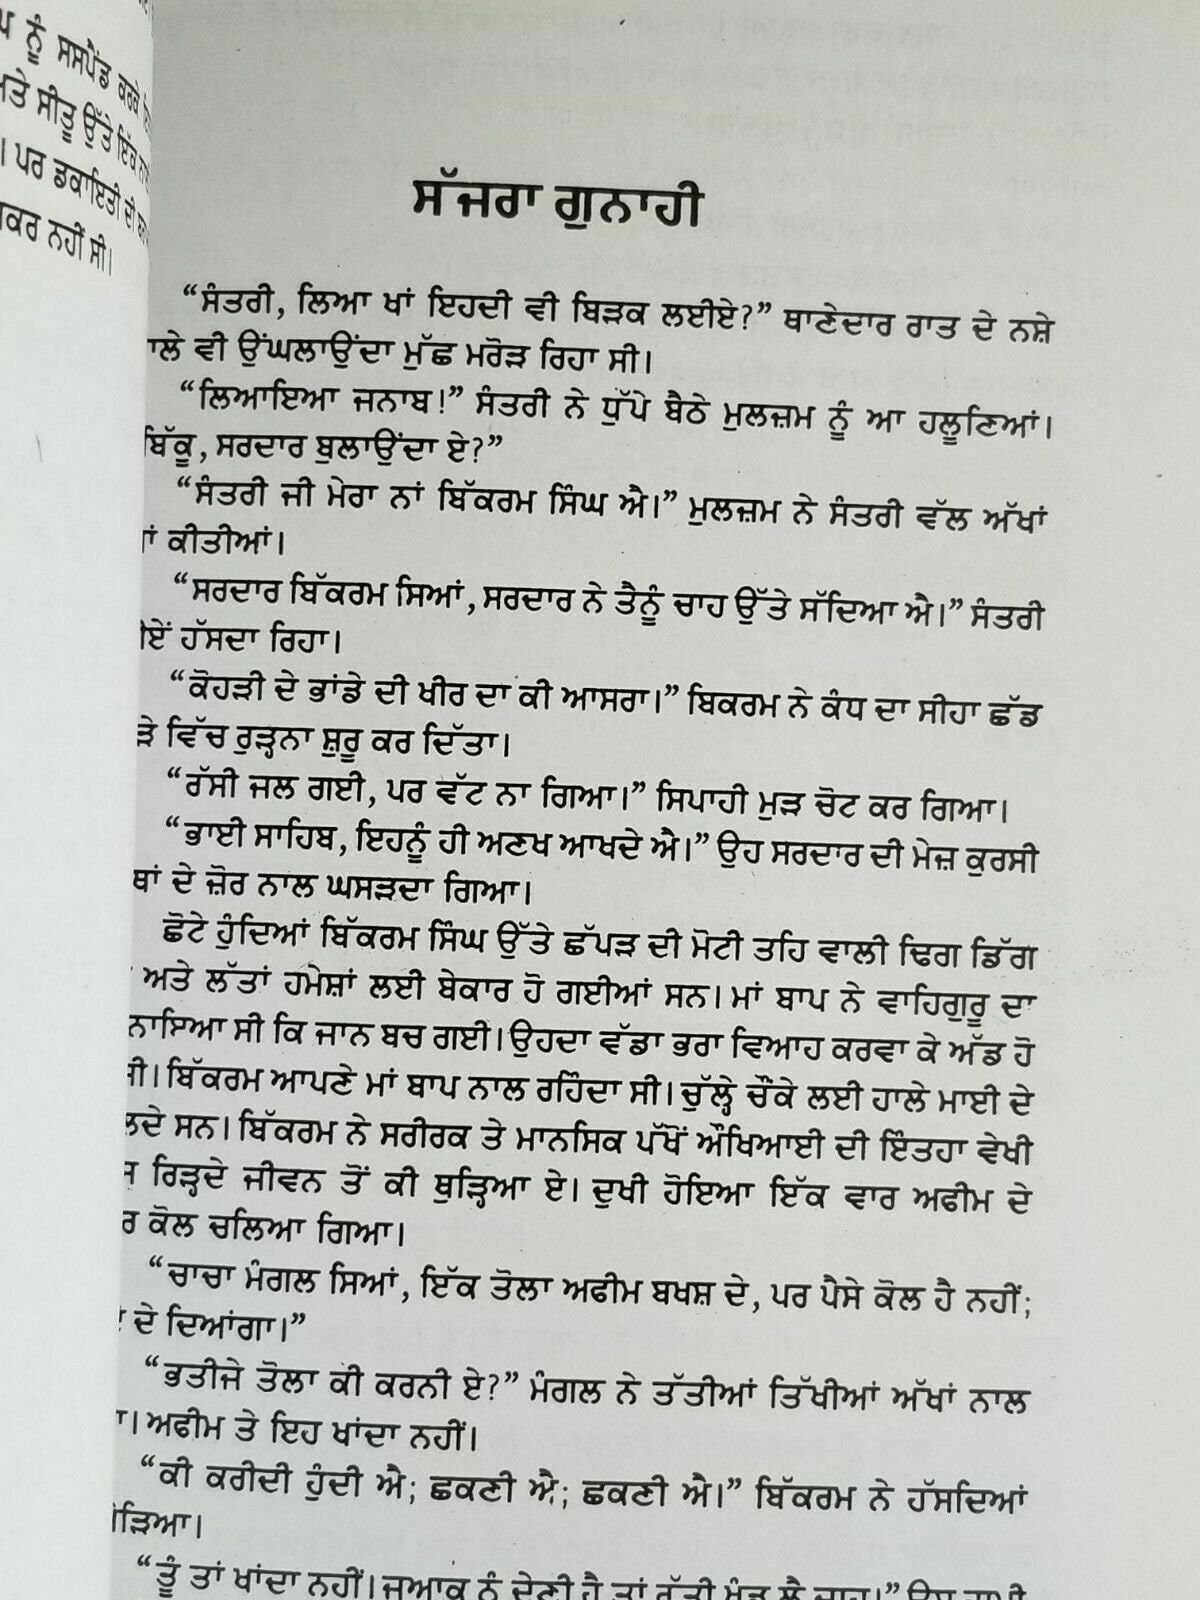 ਨੂੰ ਸਸਪੈਂਡ ਕਰਕੇ
ਸੀਤੂ ਉੱਤੇ ਇੱਕ
। ਪਰ ਡਕਾਇਤੀ ਦੀ
ਨਹੀਂ ਸੀ।
ਸੱਜਰਾ ਗੁਨਾਹੀ
“ਸੰਤਰੀ, ਲਿਆ ਖਾਂ ਇਹਦੀ ਵੀ ਬਿੜਕ ਲਈਏ?” ਥਾਣੇਦਾਰ ਰਾਤ ਦੇ ਨਸ਼ੇ
ਵੀ ਉਂਘਲਾਉਂਦਾ ਮੁੱਛ ਮਰੋੜ ਰਿਹਾ ਸੀ।
“ਲਿਆਇਆ ਜਨਾਬ!” ਸੰਤਰੀ ਨੇ ਧੁੱਪੇ ਬੈਠੇ ਮੁਲਜ਼ਮ ਨੂੰ ਆ ਹਲੂਣਿਆਂ।
ਬਿੱਕੂ, ਸਰਦਾਰ ਬੁਲਾਉਂਦਾ ਏ?”
“ਸੰਤਰੀ ਜੀ ਮੇਰਾ ਨਾਂ ਬਿੱਕਰਮ ਸਿੰਘ ਐ।” ਮੁਲਜ਼ਮ ਨੇ ਸੰਤਰੀ ਵੱਲ ਅੱਖਾਂ
ਕੀਤੀਆਂ।
“ਸਰਦਾਰ ਬਿੱਕਰਮ ਸਿਆਂ, ਸਰਦਾਰ ਨੇ ਤੈਨੂੰ ਚਾਹ ਉੱਤੇ ਸੱਦਿਆ ਐ।” ਸੰਤਰੀ
ਹੱਸਦਾ ਰਿਹਾ।
“ਕੋਹੜੀ ਦੇ ਭਾਂਡੇ ਦੀ ਖੀਰ ਦਾ ਕੀ ਆਸਰਾ।” ਬਿਕਰਮ ਨੇ ਕੰਧ ਦਾ ਸੀਹਾ ਛੱਡ
ਵਿੱਚ ਰੁੜ੍ਹਨਾ ਸ਼ੁਰੂ ਕਰ ਦਿੱਤਾ।
“ਰੱਸੀ ਜਲ ਗਈ, ਪਰ ਵੱਟ ਨਾ ਗਿਆ।” ਸਿਪਾਹੀ ਮੁੜ ਚੋਟ ਕਰ ਗਿਆ।
“ਭਾਈ ਸਾਹਿਬ, ਇਹਨੂੰ ਹੀ ਅਣਖ ਆਖਦੇ ਐ।” ਉਹ ਸਰਦਾਰ ਦੀ ਮੇਜ਼ ਕੁਰਸੀ
ਦੇ ਜ਼ੋਰ ਨਾਲ ਘਸੜਦਾ ਗਿਆ।
ਛੋਟੇ ਹੁੰਦਿਆਂ ਬਿੱਕਰਮ ਸਿੰਘ ਉੱਤੇ ਛੱਪੜ ਦੀ ਮੋਟੀ ਤਹਿ ਵਾਲੀ ਢਿਗ ਡਿੱਗ
ਅਤੇ ਲੱਤਾਂ ਹਮੇਸ਼ਾਂ ਲਈ ਬੇਕਾਰ ਹੋ ਗਈਆਂ ਸਨ। ਮਾਂ ਬਾਪ ਨੇ ਵਾਹਿਗੁਰੂ ਦਾ
ਸੀ ਕਿ ਜਾਨ ਬਚ ਗਈ। ਉਹਦਾ ਵੱਡਾ ਭਰਾ ਵਿਆਹ ਕਰਵਾ ਕੇ ਅੱਡ ਹੋ
। ਬਿੱਕਰਮ ਆਪਣੇ ਮਾਂ ਬਾਪ ਨਾਲ ਰਹਿੰਦਾ ਸੀ। ਚੁੱਲ੍ਹੇ ਚੌਕੇ ਲਈ ਹਾਲੇ ਮਾਈ ਦੇ
ਸਨ। ਬਿੱਕਰਮ ਨੇ ਸਰੀਰਕ ਤੇ ਮਾਨਸਿਕ ਪੱਖੋਂ ਔਖਿਆਈ ਦੀ ਇੰਤਹਾ ਵੇਖੀ
ਰਿੜ੍ਹਦੇ ਜੀਵਨ ਤੋਂ ਕੀ ਥੁੜ੍ਹਿਆ ਏ। ਦੁਖੀ ਹੋਇਆ ਇੱਕ ਵਾਰ ਅਫੀਮ ਦੇ
ਕੋਲ ਚਲਿਆ ਗਿਆ।
“ਚਾਚਾ ਮੰਗਲ ਸਿਆਂ, ਇੱਕ ਤੋਲਾ ਅਫੀਮ ਬਖਸ਼ ਦੇ, ਪਰ ਪੈਸੇ ਕੋਲ ਹੈ ਨਹੀਂ;
ਦੇ ਦਿਆਂਗਾ।”
“ਭਤੀਜੇ ਤੋਲਾ ਕੀ ਕਰਨੀ ਏ?” ਮੰਗਲ ਨੇ ਤੱਤੀਆਂ ਤਿੱਖੀਆਂ ਅੱਖਾਂ ਨਾਲ
। ਅਫੀਮ ਤੇ ਇਹ ਖਾਂਦਾ ਨਹੀਂ।
“ਕੀ ਕਰੀਦੀ ਹੁੰਦੀ ਐ; ਛਕਣੀ ਐ; ਛਕਣੀ ਐ।” ਬਿੱਕਰਮ ਨੇ ਹੱਸਦਿਆਂ
“ਤੂੰ ਤਾਂ ਖਾਂਦਾ ਨਹੀਂ। ਜੁਆਕ ਨੂੰ ਦੇਣੀ ਹੈ ਤਾਂ ਰੱਤੀ